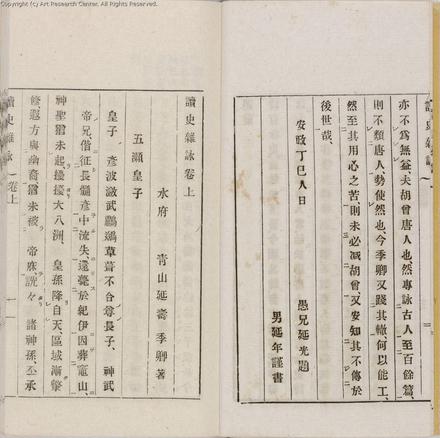 Copyright (c) Art Research Center. All Rights Reserved.
亦不為無益夫胡曾唐人也然專詠古人至百餘篇、
則不類唐人勢使然也、今季卿又踐其轍、何以能工、
然至其用心之苦則未必減胡曾又安知其不傳於
後世哉、
安政丁巳人日
愚兄延光題
男延年謹書
讀史雜詠卷上
水府 青山延壽季卿著
五瀬皇子
皇子 彥波瀲武鸕鷀草葺不合尊長子、神武
帝兄偕征長髓彥中流矢、還薨於紀伊因葬竈山、
神聖猶未起擾擾大八洲、皇孫降自天、區域漸
修、遐方與 裔猶未被 帝庥、諸神孫、丕承
讀史雜詠 卷上 一